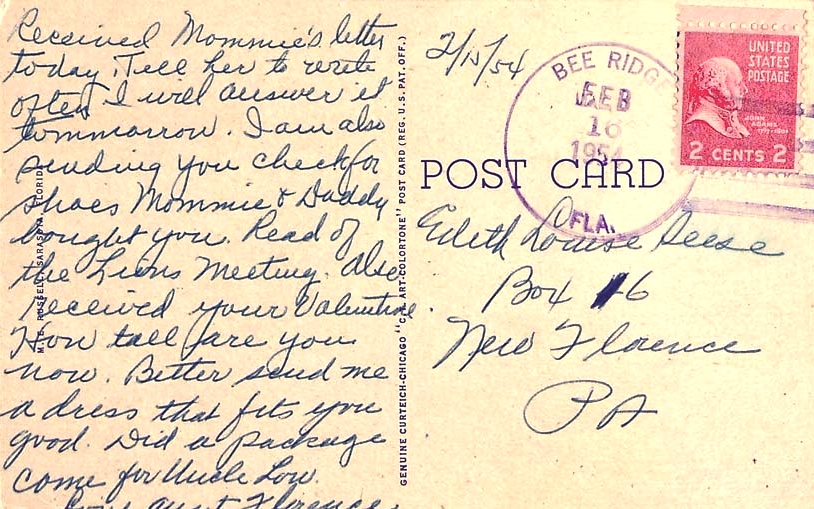 Received Mommie's letter
today. Tell her to write
often I will answer it
tommorrow. I am also
sending you check for
shoes Mommie & Daddy
bought you. Read of
the Lions Meeting. Also
received your Valentine.
How tall are you
now. Better send me
a dress that fits you
good. Did a package
come for Uncle Lou.
Love Aunt Florence
M. E. RUSSELL, SARASOTA, FLORIDA
GENUINE CURTEICH-CHICAGO "C.T. ART-COLORTONE" POST CARD (REG. U.S. PAT. OFF.)
2/15/54
BEE RIDGE
FEB
16
1954
FLA.
UNITED
STATES
POSTAGE
JOHN
ADAMS
2 CENTS 2
POST CARD
Edith Louise Reese
Box 46
New Florence
PA